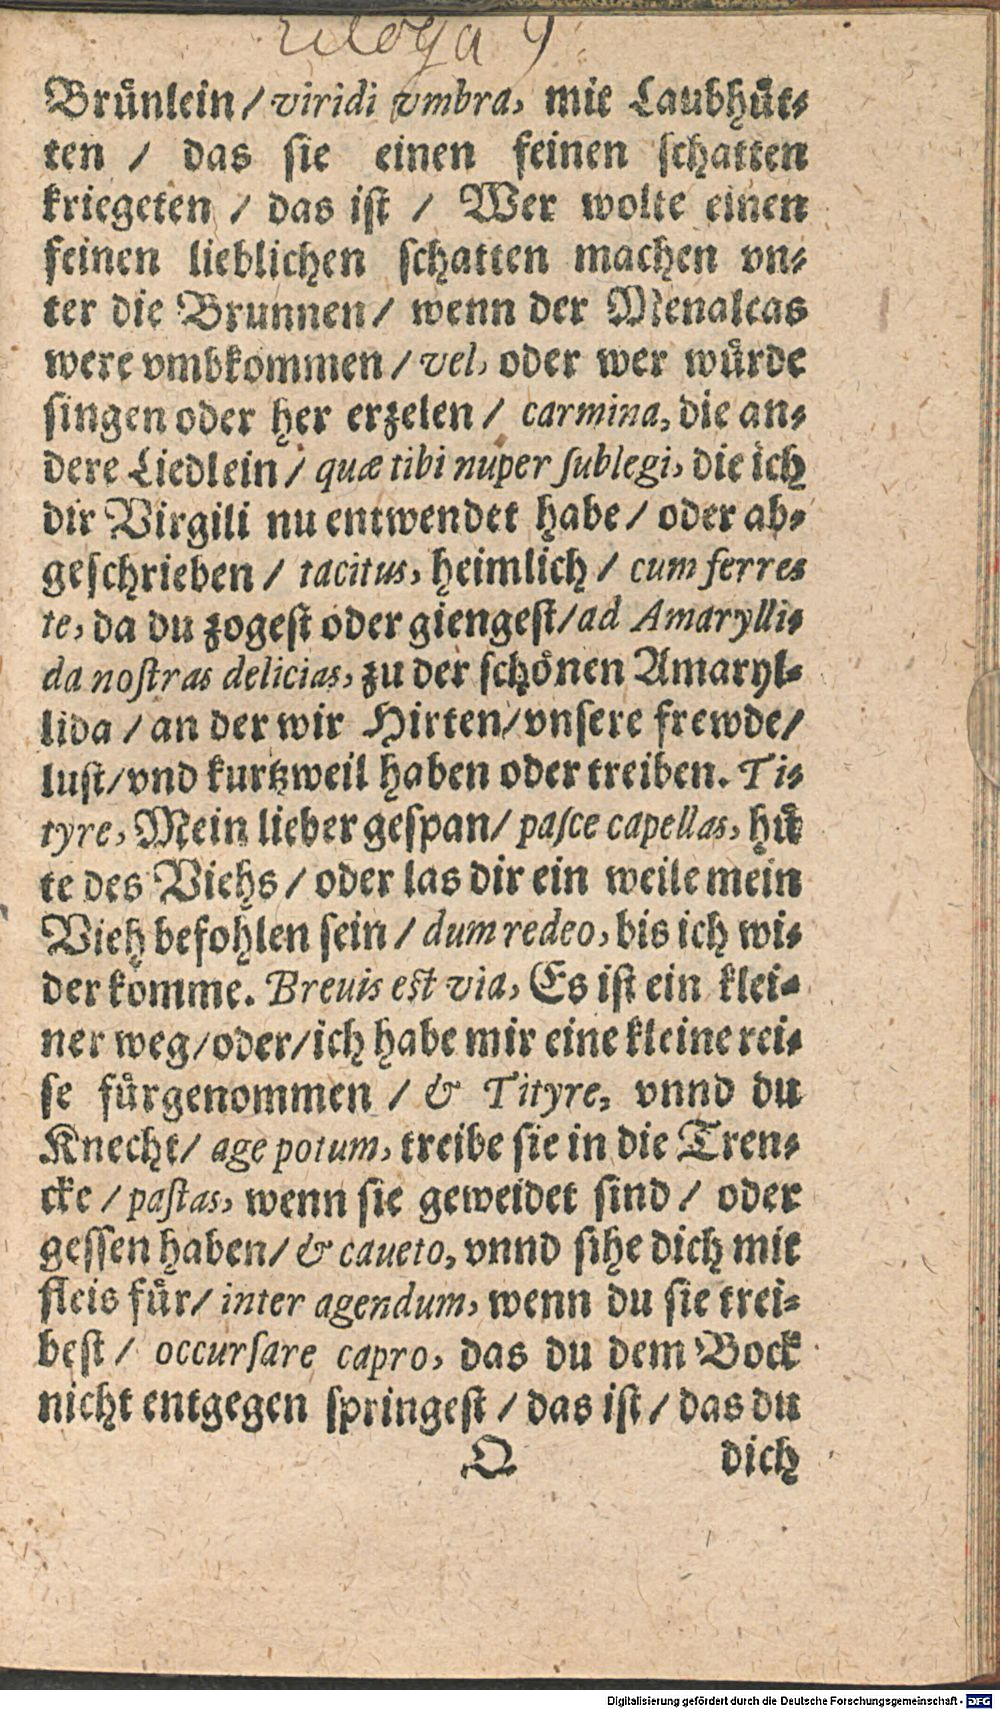 Ecloga 9
Brünlein / viridi vmbra, mit Laubhüt⸗
ten / das sie einen feinen schatten
kriegeten / das ist / Wer wolte einen
feinen lieblichen schatten machen vn⸗
ter die Brunnen / wenn der Menalcas
were vmbkommen / vel, oder wer würde
singen oder her erzelen / carmina, die an⸗
dere Liedlein / quæ tibi nuper ſublegi, die ich
dir Virgili nu entwendet habe / oder ab⸗
geschrieben / tacitus, heimlich / cum ferres
te, da du zogest oder giengest / ad Amarylli⸗
da noſtras delicias, zu der schönen Amaryl⸗
lida / an der wir Hirten / vnsere frewde /
lust / vnd kurtzweil haben oder treiben. Ti⸗
tyre, Mein lieber gespan / paſce capellas, hü
te des Viehs / oder las dir ein weile mein
Vieh befohlen sein / dum redeo, bis ich wi⸗
der komme. Breuis est via, Es ist ein klei⸗
ner weg / oder / ich habe mir eine kleine rei⸗
se fürgenommen / & Tityre, vnnd du
Knecht / age potum, treibe sie in die Tren⸗
cke / paſtas, wenn sie geweidet sind / oder
gessen haben / & caueto, vnnd sihe dich mit
fleis für / inter agendum, wenn du sie trei⸗
best / occurſare capro, das du dem Bock
nicht entgegen springest / das ist / das du
Q dich
Digitalisierung gefördert durch die Deutsche Forschungsgemeinschaft - DFG